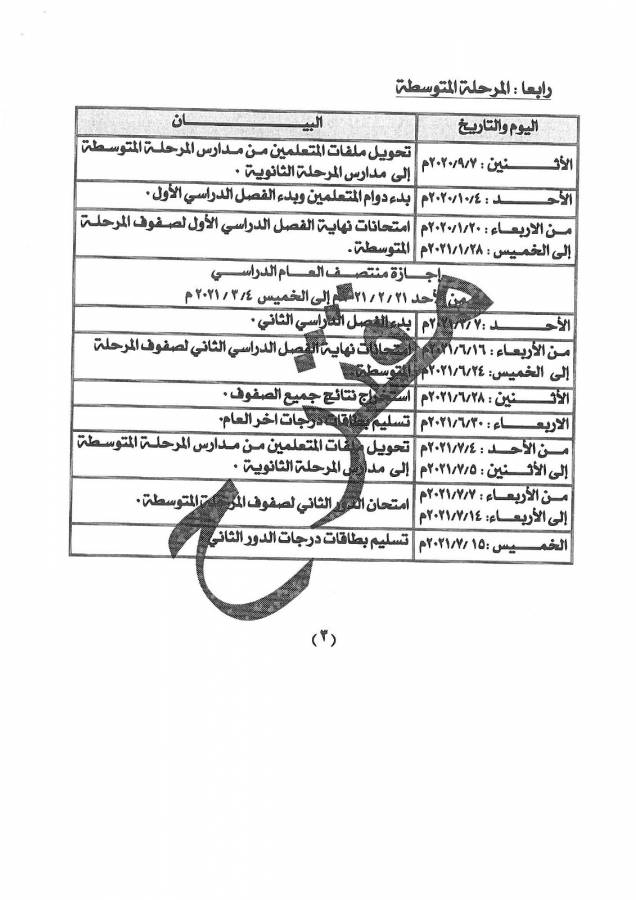 رابعا : المرحلة المتوسطة
اليوم والتاريخ
البيـــــــــان
الأثـــنين : ٢٠٢٠/٩/٧م
تحويل ملفات المتعلمين من مدارس المرحلة المتوسطة
إلى مدارس المرحلة الثانوية ٠
الأحـــد : ٢٠٢٠/١٠/٤م
بدء دوام المتعلمين وبدء الفصل الدراسي الأول٠
من الاربعاء : ٢٠٢٠/١/٢٠م
إلى الخميس : ٢٠٢١/١/٢٨م
امتحانات نهاية الفصل الدراسي الأول لصفوف المرحلة
المتوسطة .
إجازة منتصف العام الدراسي
من الأحد ٢٠٢١/٢/٢١م إلى الخميس ٢٠٢١/٣/٤ م
الأحـــد : ٢٠٢١/٢/٧م
بدء الفصل الدراسي الثاني٠
من الأربعاء : ٢٠٢١/٦/١٦م
إلى الخميس: ٢٠٢١/٦/٢٤م
امتحانات نهاية الفصل الدراسي الثاني لصفوف المرحلة
المتوسطة.
الأثنين : ٢٠٢١/٦/٢٨م
استخراج نتائج جميع الصفوف٠
الاربعـاء : ٢٠٢١/٦/٣٠م
تسليم بطاقات درجات اخر العام٠
من الأحد : ٢٠٢١/٧/٤م
إلى الأثنين : ٢٠٢١/٧/٥م
تحويل ملفات المتعلمين من مدارس المرحلة المتوسطة
إلى مدارس المرحلة الثانوية ٠
من الأربعاء : ٢٠٢١/٧/٧م
إلى الأربعاء: ٢٠٢١/٧/١٤م
امتحان الدور الثاني لصفوف المرحلة المتوسطة٠
الخميس : ٢٠٢١/٧/١٥م
تسليم بطاقات درجات الدور الثاني
مقترح
(٣)